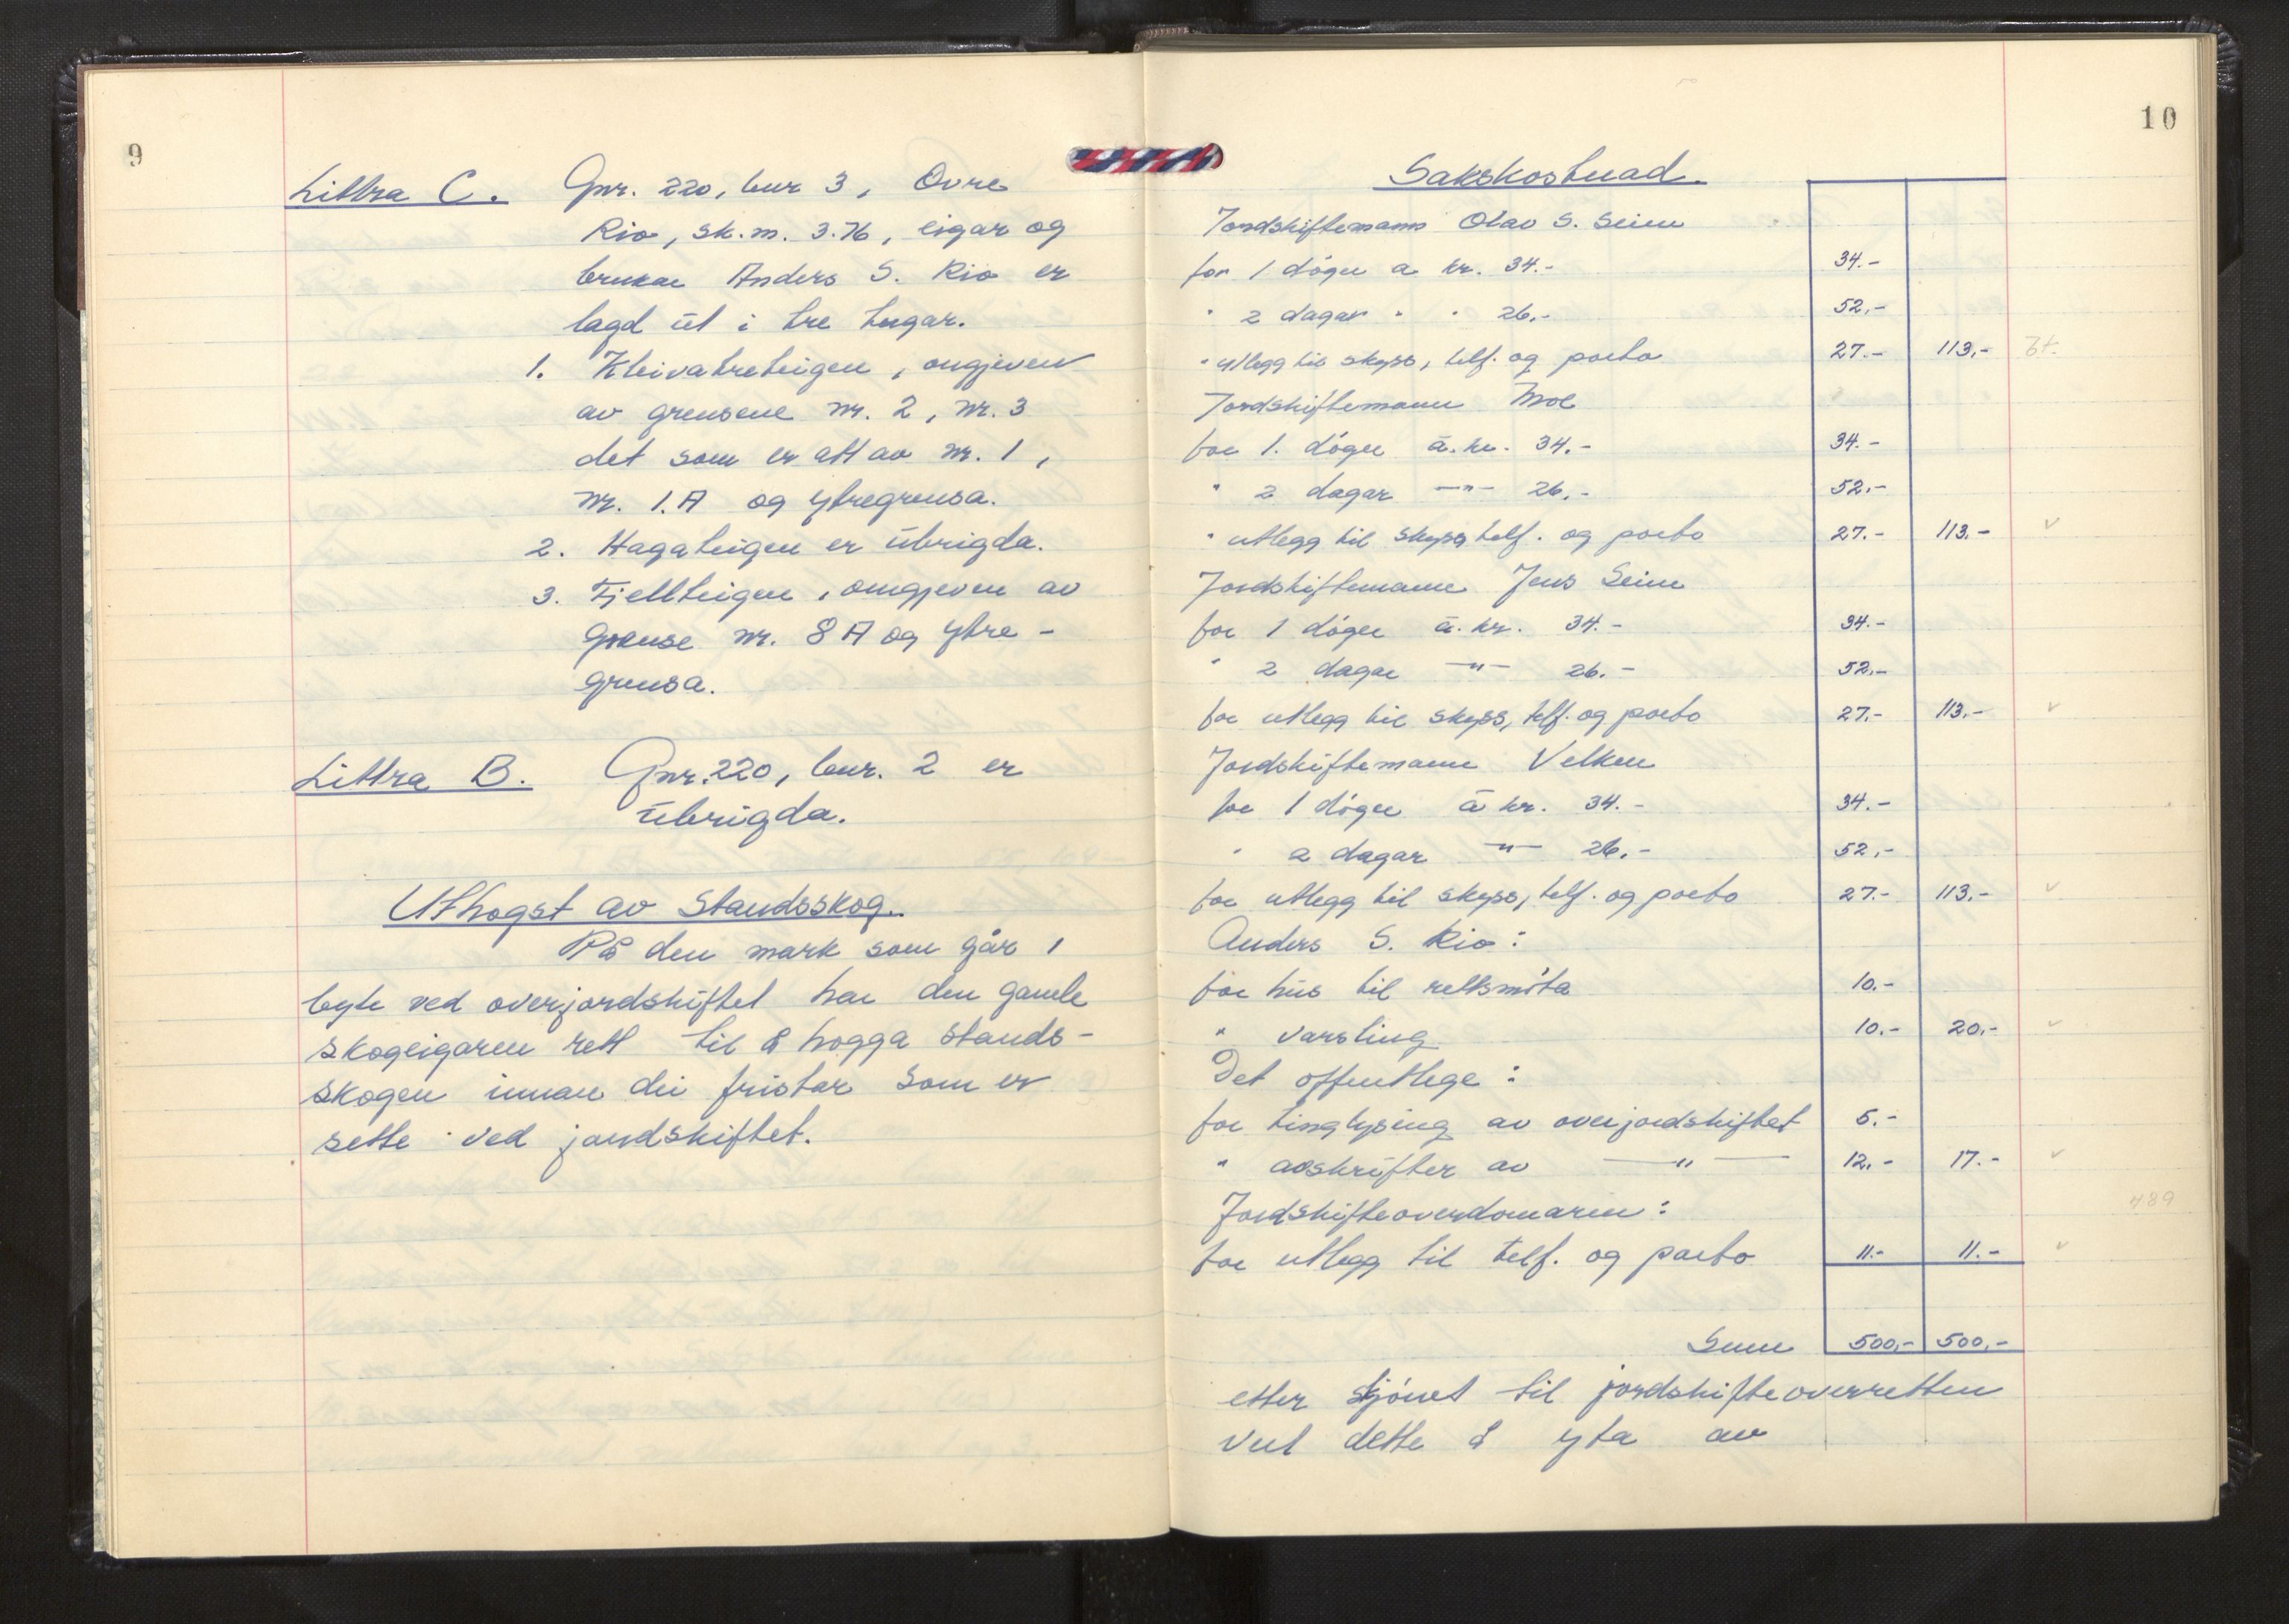 9
Littra C. Gnr. 220, bnr 3, Øvre
Rio, sk.m. 3.76, eigar og
brukar Anders S. Rio er
lagd ut i tre teigar.
1. Kleivatreteigen, omgjeven
av grensene nr. 2, nr. 3
det som er att av nr. 1,
nr. 1.A og ytregrensa.
2. Hagateigen er ubrigda.
3. Fjellteigen, omgjeven av
Grense nr. 8 A og ytre-
grensa.
Littra B. Gnr. 220, bnr. 2 er
ubrigda.
Uthogst av Standsskog.
På den mark som går i
byte ved overjordskiftet har den gamle
skogeigaren rett til å hogga stands-
skogen innan dei fristar som er
sette ved jordskiftet.
10
Sakskostnad.
Jordskiftemann Olav S. Seim
for 1 døger a kr. 34.- 34.-
" 2 dagar " " 26.- 52.-
" utlegg til skyss, telf. og porto 27.- 113.-
Jordskiftemann Moe
for 1. døger à. kr. 34.- 34.-
" 2 dagar —"— 26.- 52.-
" utlegg til skyss telf. og porto 27.- 113.- v
Jordskiftemann Jens Seim
for 1 døger à. kr. 34.- 34.-
" 2 dagar —"— 26.- 52.-
for utlegg til skyss, telf. og porto 27.- 113.- v
Jordskiftemann Velken
for 1 døger à kr. 34.- 34.-
" 2 dagar —"— 26.- 52.-
for utlegg til skyss, telf. og porto 27.- 113.- v
Anders S. Rio:
for hus til rettsmøta 10.-
" varsling 10.- 20.- v
Det offentlege:
for tinglysing av overjordskiftet 5.-
" avskrifter av —"— 12.- 17.- v
489
Jordskifteoverdomaren:
for utlegg til telf. og porto 11.- 11.- v
Sum 500,- 500,-
etter skjønet til jordskifteoverretten
vert dette å yta av